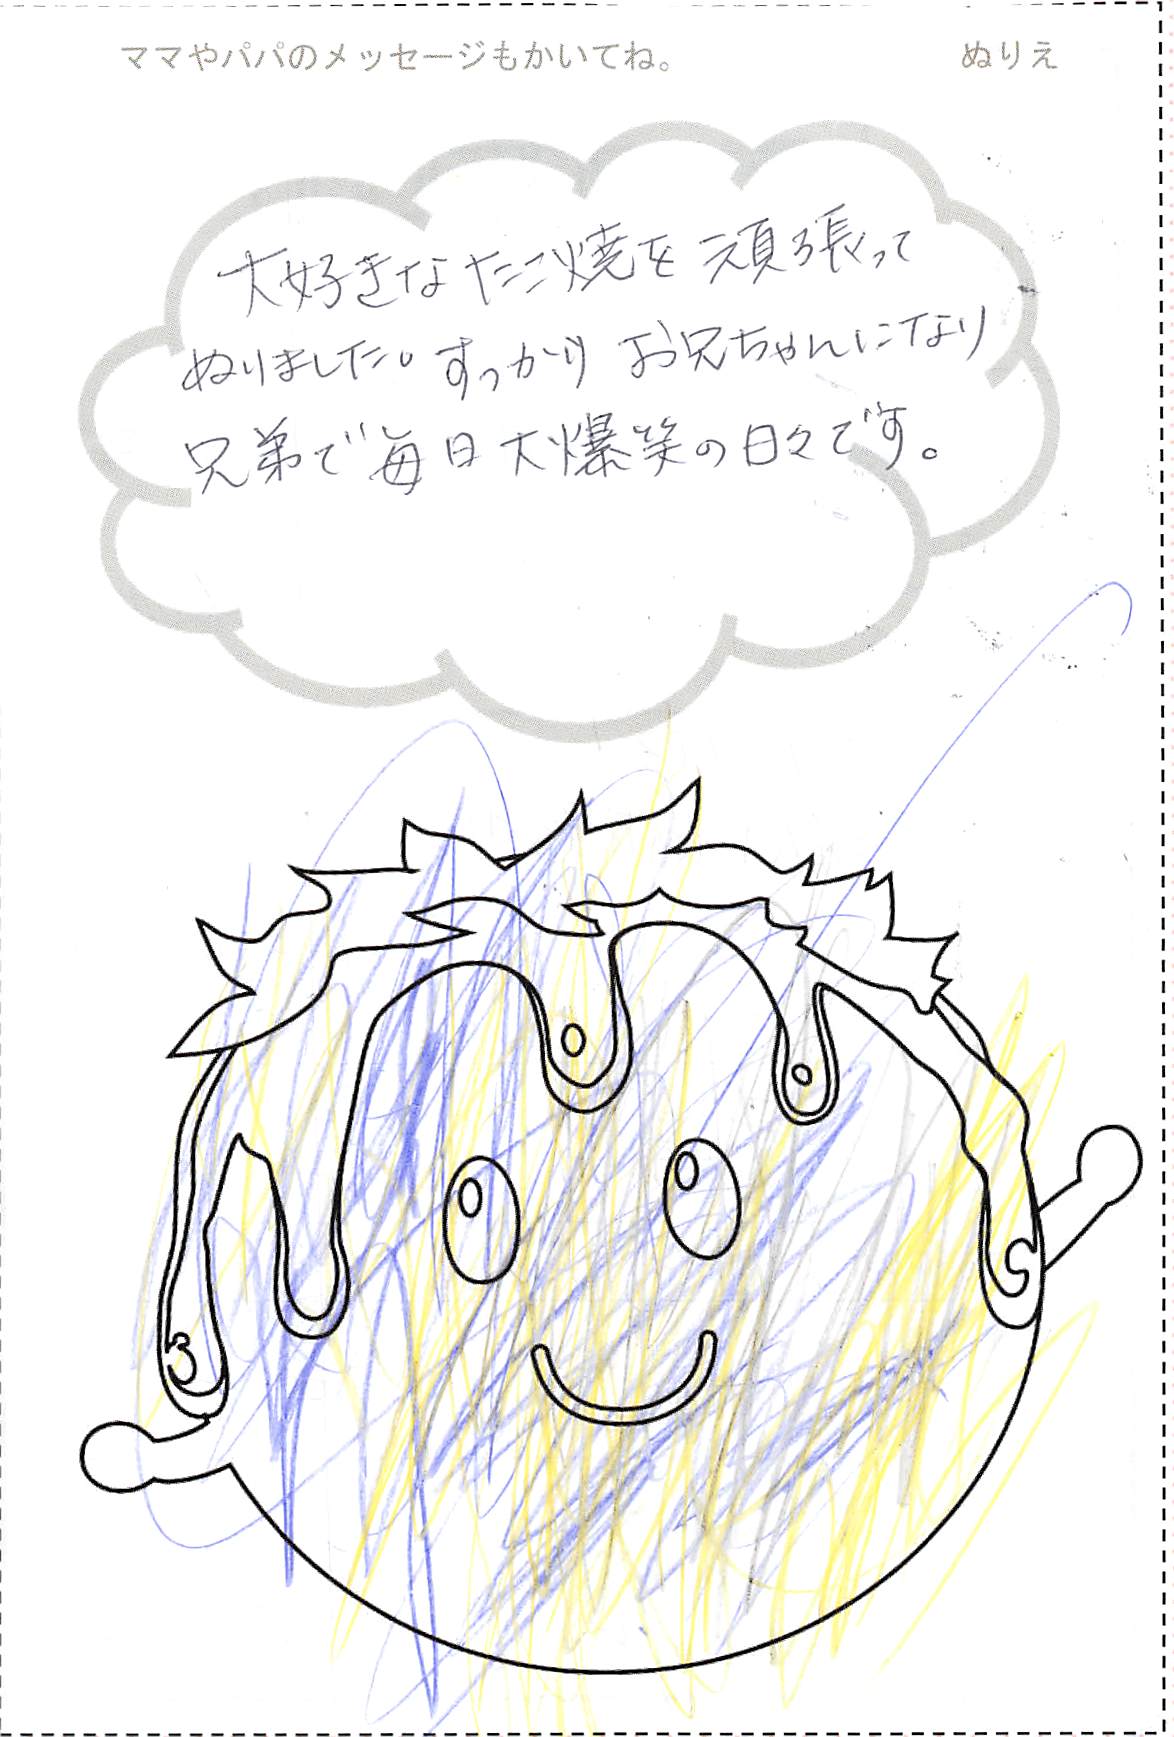 ママやパパのメッセージもかいてね。
ぬりえ
大好きなたこ焼を頑張って
ぬりました。すっかりお兄ちゃんになり
兄弟で毎日大爆笑の日々です。